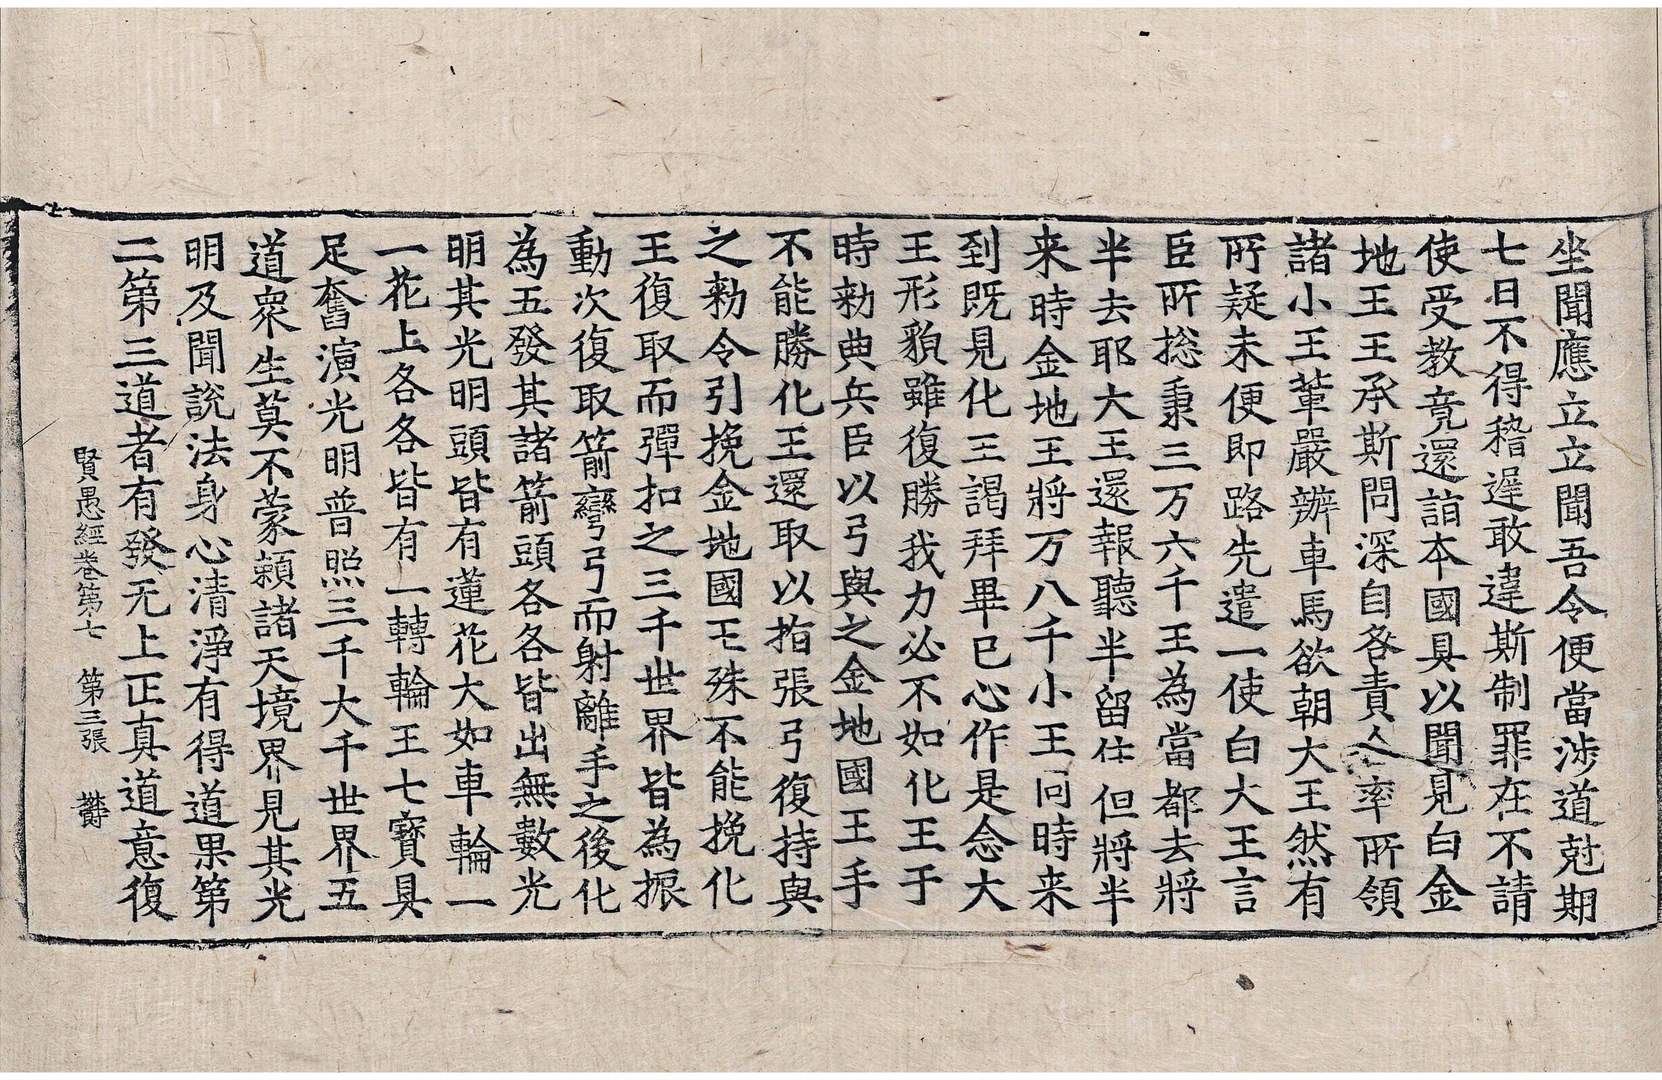 坐聞應立立聞吾令便當涉道尅期
七日不得稽遲敢違斯制罪在不請
使受教竟還詣本國具以聞見白金
地王王承斯問深自咎責人率所領
諸小王輩嚴辦車馬欲朝大王然有
所疑未便即路先遣一使白大王言
臣所捴秉三万六千王為當都去將
半去耶大王還報聽半留住但將半
来時金地王將万八千小王同時来
到既見化王謁拜畢已心作是念大
王形貌雖復勝我力必不如化王于
時勑典兵臣以弓與之金地國王手
不能勝化王還取以指張弓復持與
之勑令引挽金地國王殊不能挽化
王復取而彈扣之三千世界皆為振
動次復取箭彎弓而射離手之後化
為五發其諸箭頭各各皆出無數光
明其光明頭皆有蓮花大如車輪一
一花上各各皆有一轉輪王七寶具
足奮演光明普照三千大千世界五
道衆生莫不蒙頼諸天境界見其光
明及聞說法身心清淨有得道果第
二第三道者有發无上正真道意復
賢愚經卷第七 第三張 欝